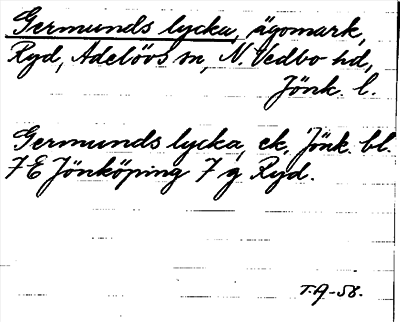 Germunds lycka, ägomark,
Ryd, Adelövs sn, N. Vedbo hd,
Jönk. l.
Germunds lycka, ek. Jönk. bl.
7 E Jönköping 7 g Ryd.
T.A-58.